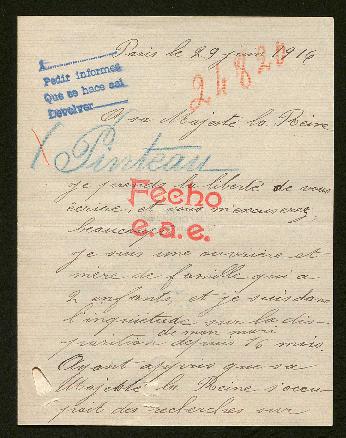 Paris le 29 juin 1916
A
Pedir informes
Que se hace así
Devolver
24820
Sa Majesté la Reine
Pinteau
je prends la liberté de vous
écrire, et vous m'excuserez
beaucoup
Fecho
e.a.e.
je suis une ouvrière et
mère de famille qui a
2 enfants, et je suis dans
l'inquiétude sur la dis-
de mon mari
parition depuis 16 mois.
Ayant appris que sa
Majesté la Reine s'occu-
pait des recherches sur